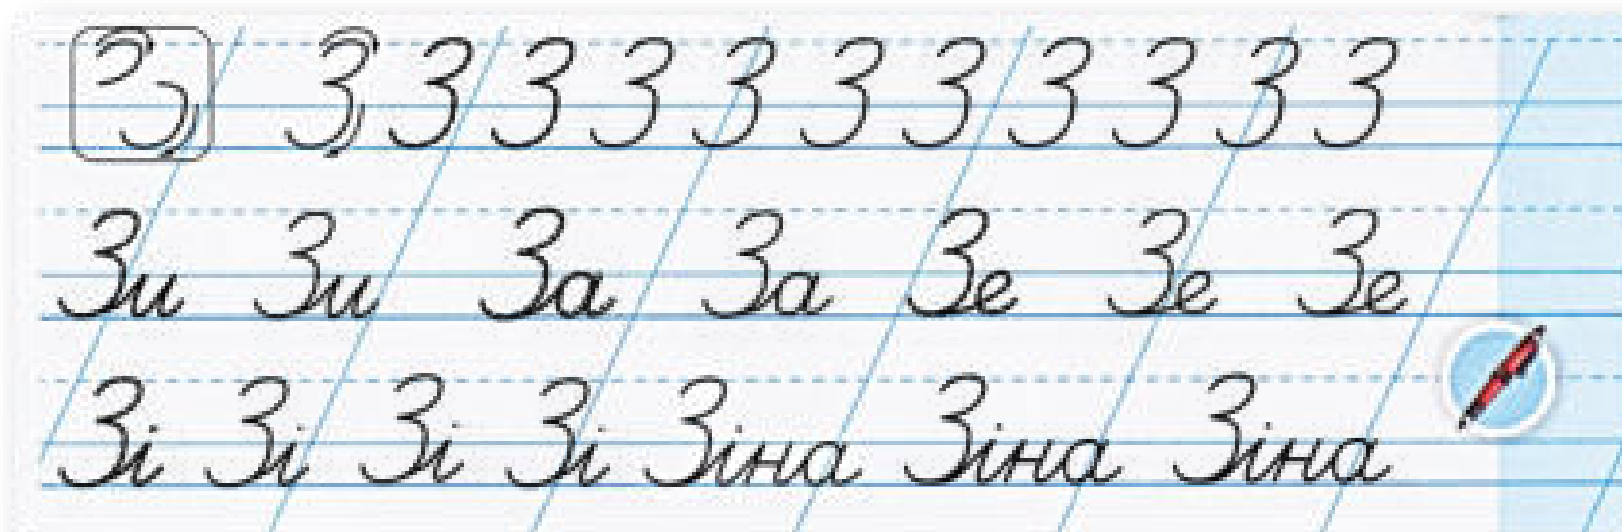 З З З З З З З З З З З З
Зи Зи За За Зе Зе Зе
Зі Зі Зі Зі Зіна Зіна Зіна